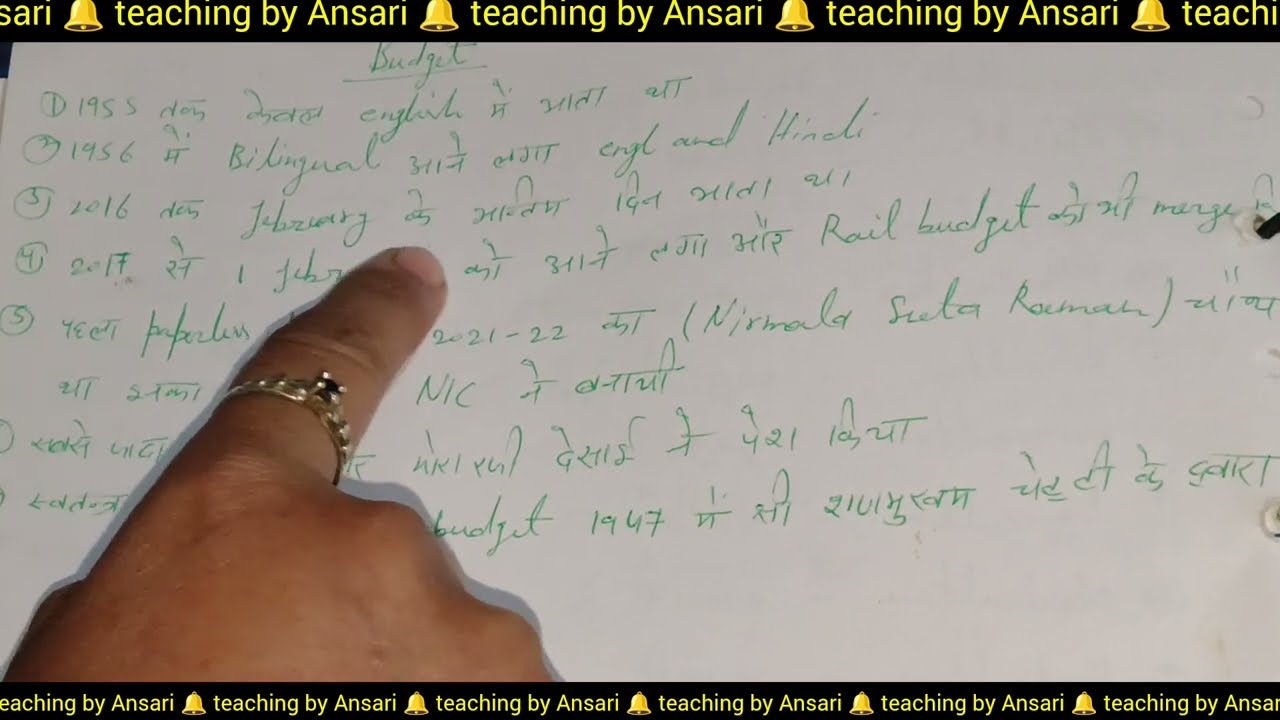 sari 🔔 teaching by Ansari 🔔 teaching by Ansari 🔔 teaching by Ansari 🔔 teachi
Budget
① 1955 तक केवल english में आता था
② 1956 में Bilingual आने लगा engl and Hindi
③ 2016 तक february के अन्तिम दिन आता था।
④ 2017 से 1 febr को आने लगा और Rail budget को भी merge
⑤ पहला paperless 2021-22 का (Nirmala Seeta Raman)
था इसका NIC ने बनायी
सबसे जादा मोरारजी देसाई ने पेश किया
स्वतन्त्र budget 1947 में सी शणमुखम चेट्टी के द्वारा
eaching by Ansari 🔔 teaching by Ansari 🔔 teaching by Ansari 🔔 teaching by Ansari 🔔 teaching by Ansari 🔔 teaching by Ansar